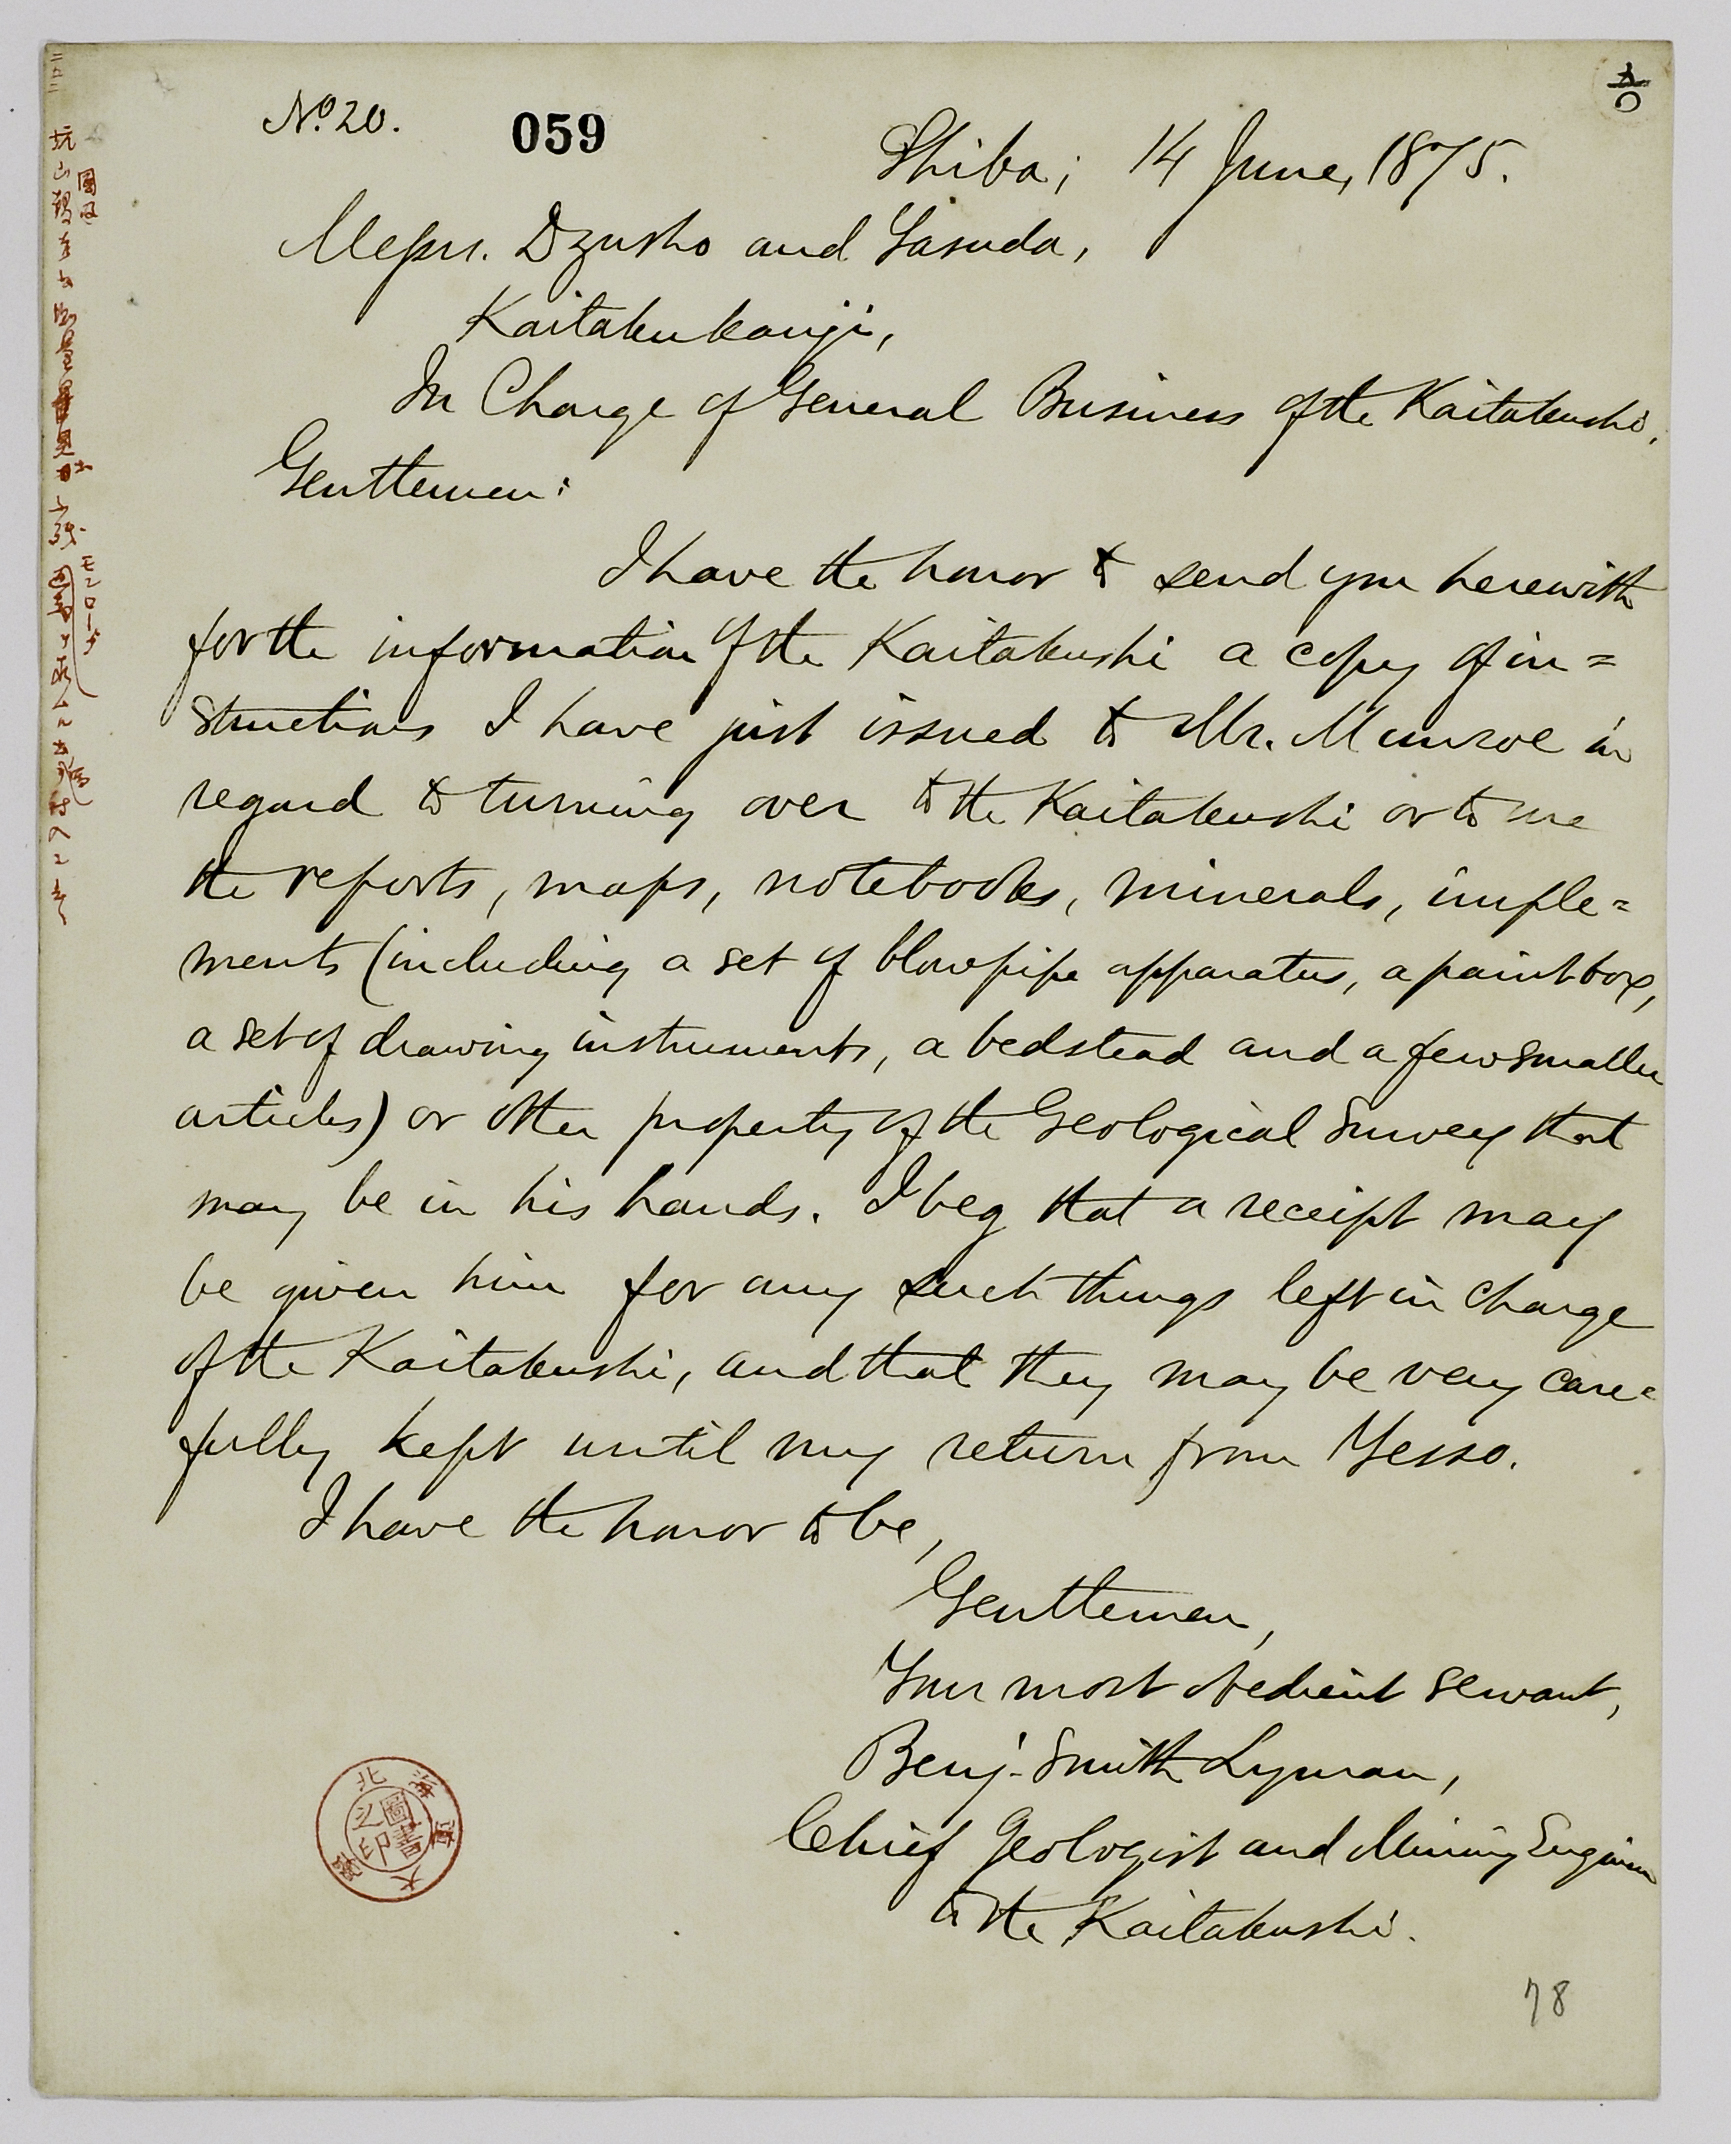 No. 20.
059
Shiba; 14 June, 1875.
Messrs. Dzusho and Yasuda,
Kaitakukanji,
In Charge of General Business of the Kaitakushi.
Gentlemen:
I have the honor to send you herewith
for the information of the Kaitakushi a copy of in=
structions I have just issued to Mr. Munroe in
regard to turning over to the Kaitakushi or to me
the reports, maps, notebooks, minerals, imple=
ments (including a set of blowpipe apparatus, a paintbox,
a set of drawing instruments, a bedstead and a few smaller
articles) or other property of the Geological Survey that
may be in his hands. I beg that a receipt may
be given him for any such things left in charge
of the Kaitakushi, and that they may be very care=
fully kept until my return from Yesso.
I have the honor to be,
Gentlemen,
Your most obedient servant,
Benj. Smith Lyman,
Chief Geologist and Mining Engineer
to the Kaitakushi.
78
北海道大學
圖書之印
モンロー